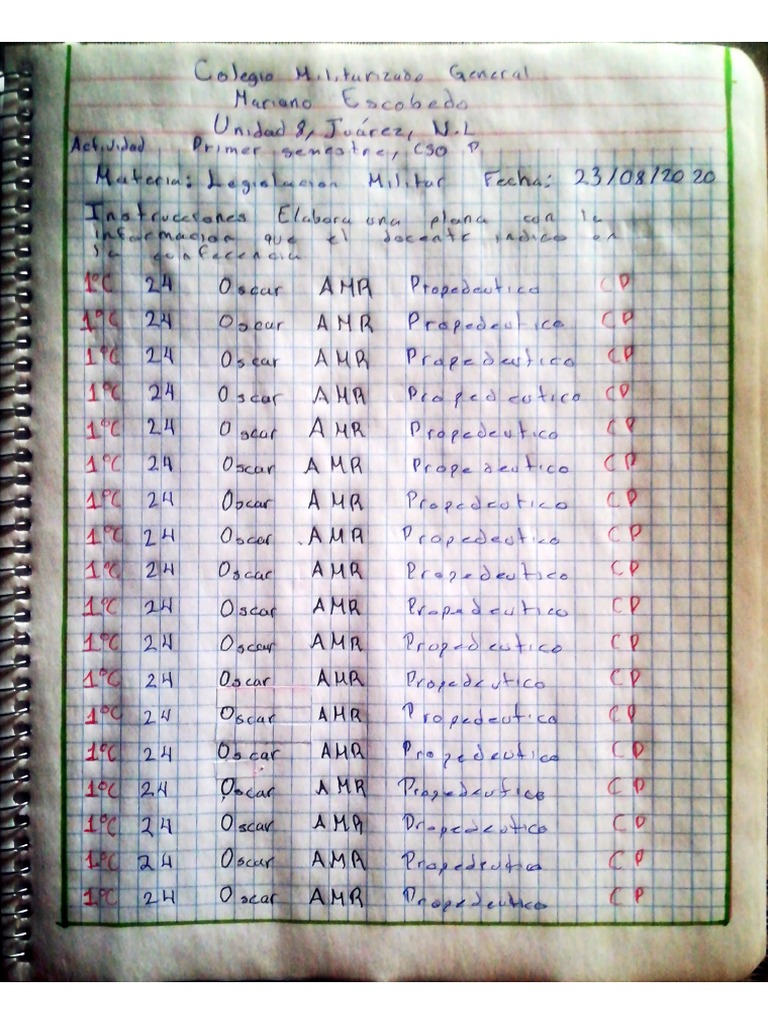 Colegio Militarizado General
Mariano Escobedo
Unidad 8, Juárez, N.L
Actividad Primer semestre, CSO P.
Materia: Legislacion Militar Fecha: 23/08/2020
Instrucciones Elabora una plana con la
informacion que el docente indico en
la conferencia
1°C 24 Oscar AMR Propedeutico CP
1°C 24 Oscar AMR Propedeutico CP
1°C 24 Oscar AMR Propedeutico CP
1°C 24 Oscar AMR Propedeutico CP
1°C 24 Oscar AMR Propedeutico CP
1°C 24 Oscar AMR Propedeutico CP
1°C 24 Oscar AMR Propedeutico CP
1°C 24 Oscar AMR Propedeutico CP
1°C 24 Oscar AMR Propedeutico CP
1°C 24 Oscar AMR Propedeutico CP
1°C 24 Oscar AMR Propedeutico CP
1°C 24 Oscar AMR Propedeutico CP
1°C 24 Oscar AMR Propedeutico CP
1°C 24 Oscar AMR Propedeutico CP
1°C 24 Oscar AMR Propedeutico CP
1°C 24 Oscar AMR Propedeutico CP
1°C 24 Oscar AMR Propedeutico CP
1°C 24 Oscar AMR Propedeutico CP